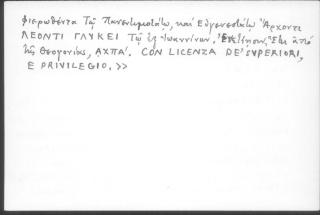 Φιερωθέντα Τῷ Πανεντιμοτάτῳ, καὶ Εὐγενεστάτῳ Ἄρχοντι
ΛΕΟΝΤΙ ΓΛΥΚΕΙ Τῷ ἐξ Ἰωαννίνων. Ἐνετίῃσιν, Ἔτει ἀπὸ
τῆς Θεογονίας, ΑΧΠΑ'. CON LICENZA DE' SUPERIORI,
E PRIVILEGIO. >>